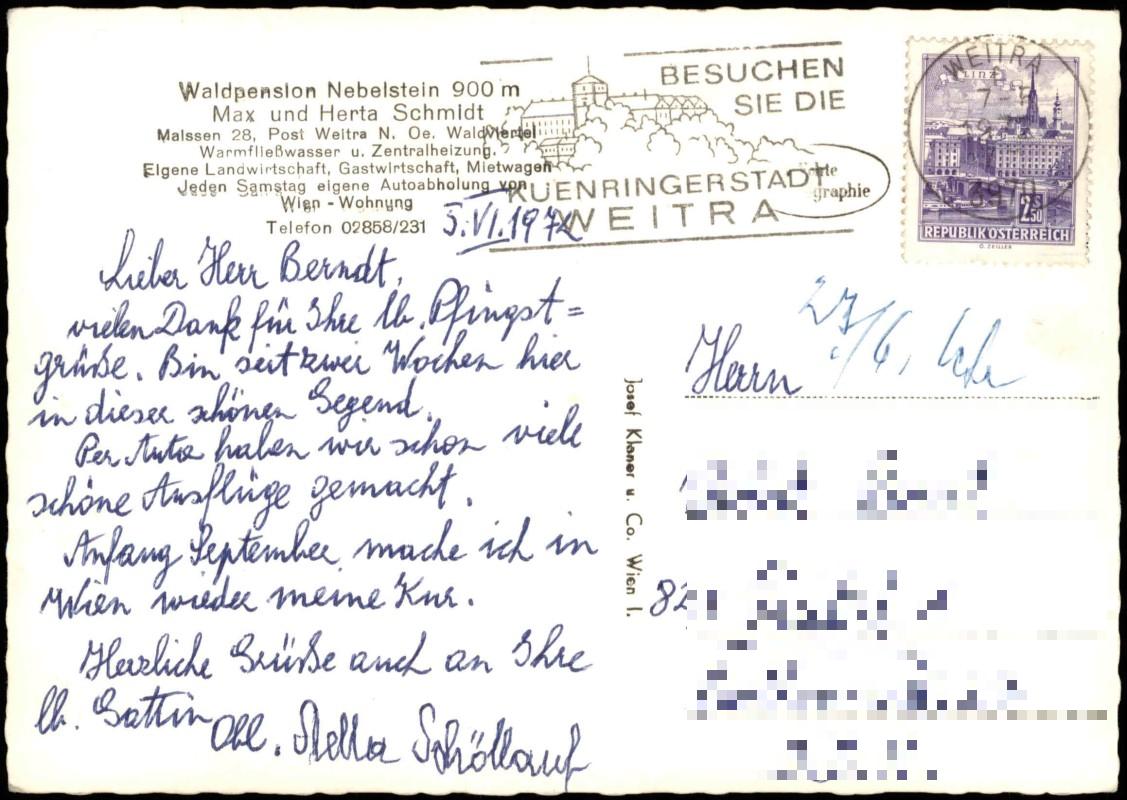 Waldpension Nebelstein 900 m
Max und Herta Schmidt
Maissen 28, Post Weitra N. Oe. Waldviertel
Warmfließwasser u. Zentralheizung.
Eigene Landwirtschaft, Gastwirtschaft, Mietwagen
Jeden Samstag eigene Autoabholung von
Wien - Wohnung
Telefon 02858/231
BESUCHEN
SIE DIE
KUENRINGERSTADT
WEITRA
graphie
WEITRA
3970
LINZ
2.50
REPUBLIK ÖSTERREICH
O. ZEILLER
5.VI.1972
Lieber Herr Berndt,
vielen Dank für Ihre lb. Pfingst=
grüße. Bin seit zwei Wochen hier
in dieser schönen Gegend.
Per Auto haben wir schon viele
schöne Ausflüge gemacht.
Anfang September mache ich in
Wien wieder meine Kur.
Herzliche Grüße auch an Ihre
lb. Gattin
Obl. Stella Schöllauf
Josef Klaner u. Co. Wien I.
27/6,
Herrn
82